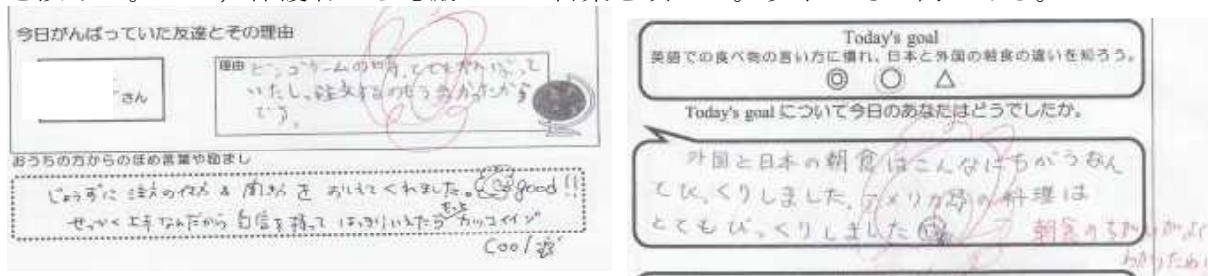 今日がんばっていた友達とその理由
さん
理由 ビンゴゲームの時、とてもがんばって
いたし、注文するのもうまかったから
です。
おうちの方からのほめ言葉や励まし
じょうずに注文の仕方&聞き方をおしえてくれました。good!!
せっかく上手なんだから自信を持ってはっきりいえたらもっとカッコイイゾ
Cool
Today's goal
英語での食べ物の言い方に慣れ、日本と外国の朝食の違いを知ろう。
◎ ○ △
Today's goal について今日のあなたはどうでしたか。
外国と日本の朝食はこんなにちがうなん
てびっくりしました。アメリカ の料理は
とてもびっくりしました
朝食のちがいがよく